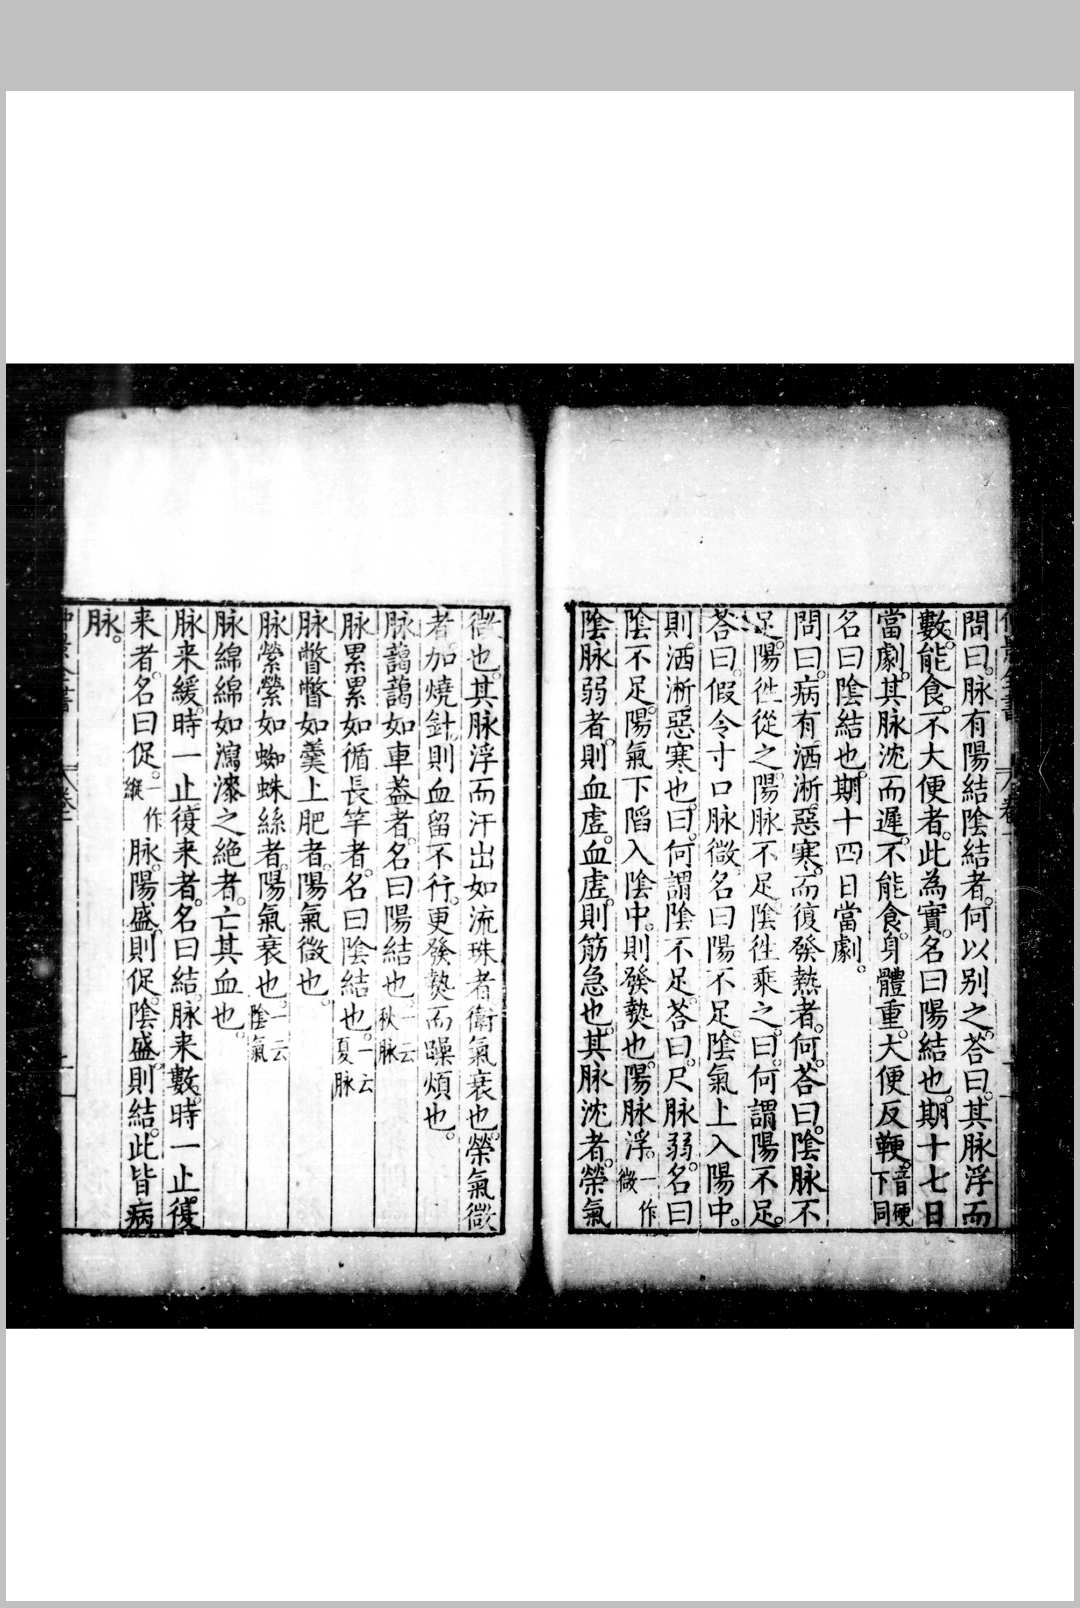 問曰。脉有陽結陰結者。何以别之。荅曰。其脉浮而
數。能食。不大便者。此為實。名曰陽結也。期十七日
當劇。其脉沈而遲。不能食。身體重。大便反鞕。音硬下同
名曰陰結也。期十四日當劇。
問曰。病有洒淅惡寒。而復發熱者。何。荅曰。陰脉不
足。陽徃從之。陽脉不足。陰徃乘之。曰。何謂陽不足。
荅曰。假令寸口脉微。名曰陽不足。陰氣上入陽中。
則洒淅惡寒也。曰。何謂陰不足。荅曰。尺脉弱。名曰
陰不足。陽氣下陷入陰中。則發熱也。陽脉浮。一作微
陰脉弱者。則血虛。血虛。則筋急也。其脉沈者。榮氣
微也。其脉浮而汗出如流珠者。衛氣衰也。榮氣微
者。加燒針。則血留不行。更發熱而躁煩也。
脉藹藹如車蓋者。名曰陽結也。一云秋脉
脉累累如循長竿者。名曰陰結也。一云夏脉
脉瞥瞥如羹上肥者。陽氣微也。
脉縈縈如蜘蛛絲者。陽氣衰也。一云陰氣
脉綿綿如瀉漆之絶者。亡其血也。
脉来緩。時一止復来者。名曰結。脉来數。時一止復
来者。名曰促。一作縱脉。陽盛。則促。陰盛。則結。此皆病
脉。